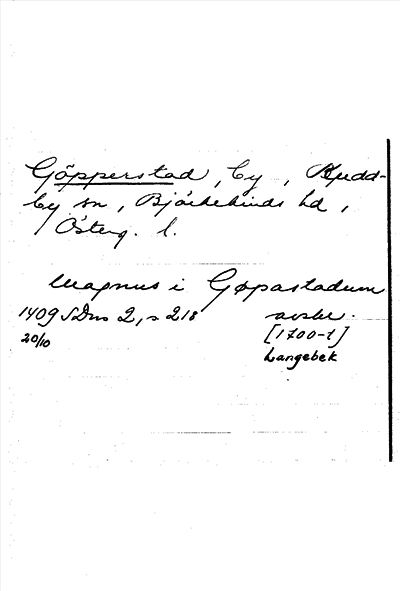 Göpperstad, by, Rudd-
by sn, Björkekinds hd,
Österg. l.
Magnus i Gøpastadum
1409 SDns 2, s 218 avskr.
20/10 [1700-t]
Langebek